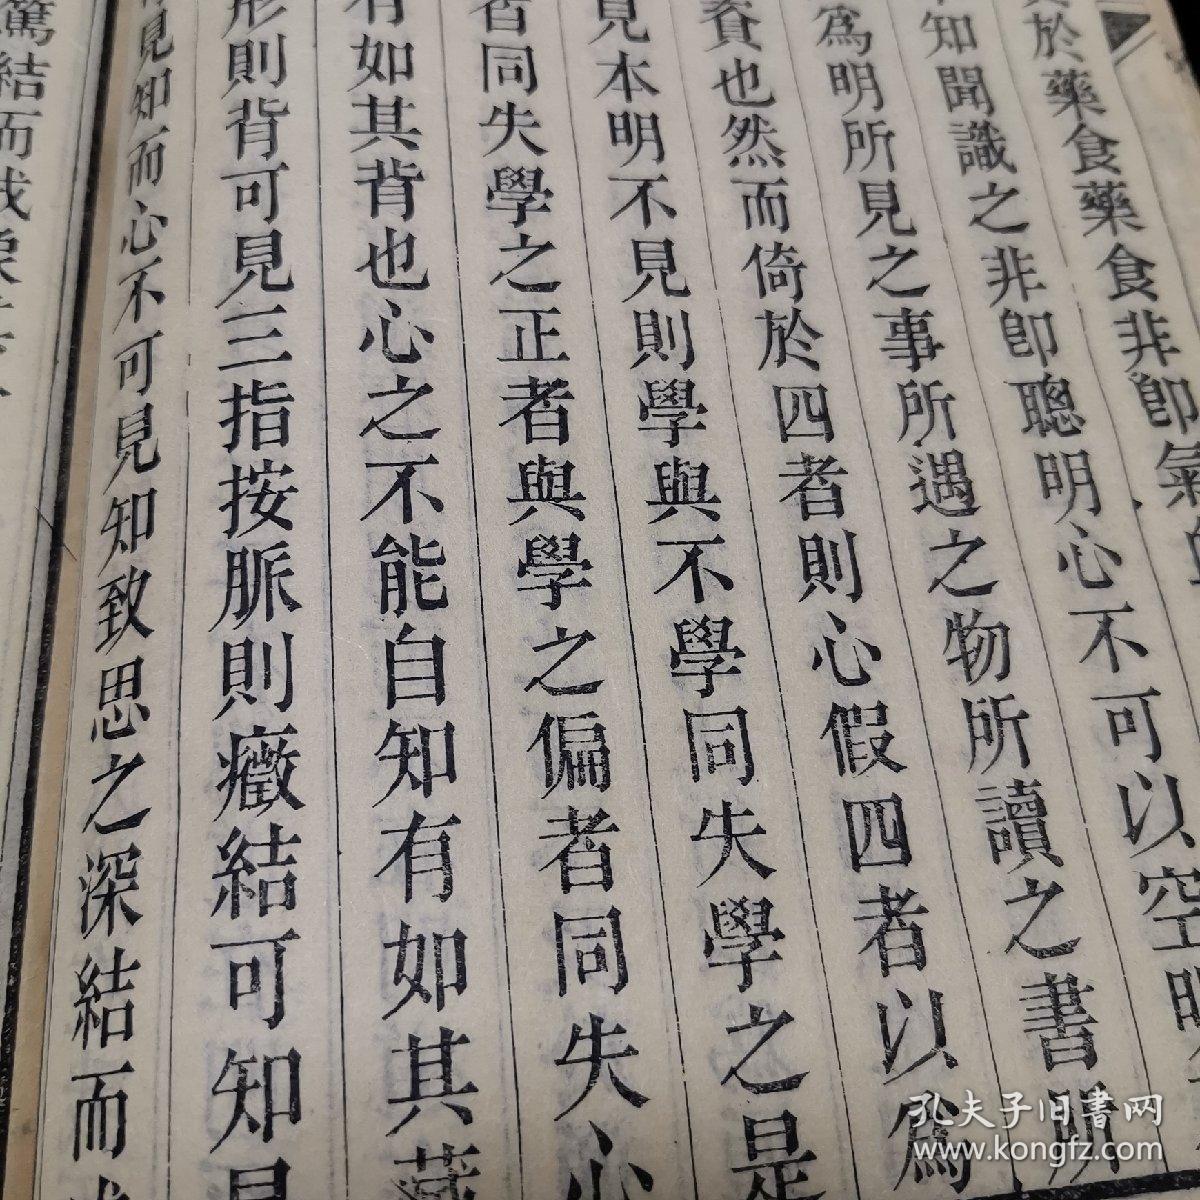 於藥食藥食非卽氣
知聞識之非卽聰明心不可以空
爲明所見之事所遇之物所讀之書所
賚也然而倚於四者則心假四者以爲
見本明不見則學與不學同失學之是
者同失學之正者與學之偏者同失心
有如其背也心之不能自知有如其
形則背可見三指按脈則癥結可知
見知而心不可見知致思之深結而
篤結而成象
孔夫子旧書网
www.kongfz.com